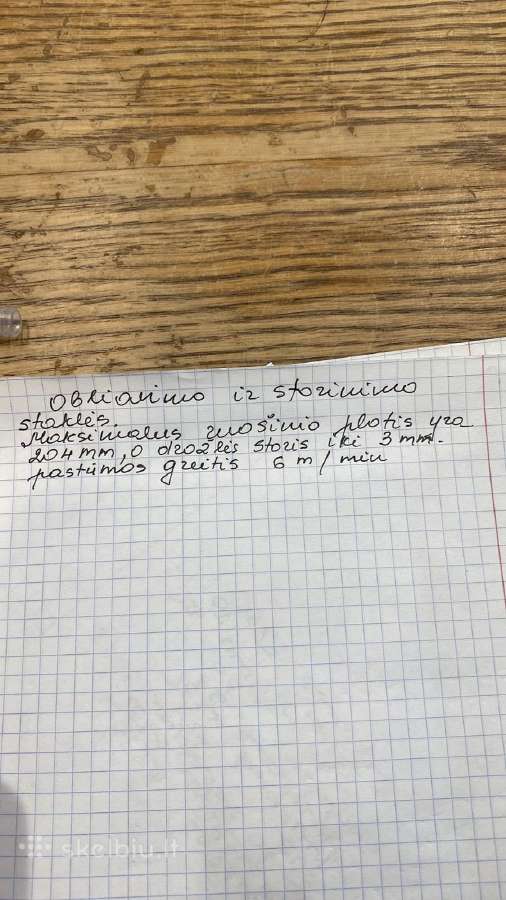 Obliavimo ir storinimo
staklės.
Maksimalus ruošinio plotis yra
204 mm, o drožlės storis iki 3 mm.
pastūmos greitis 6 m/min
skelbiu.lt